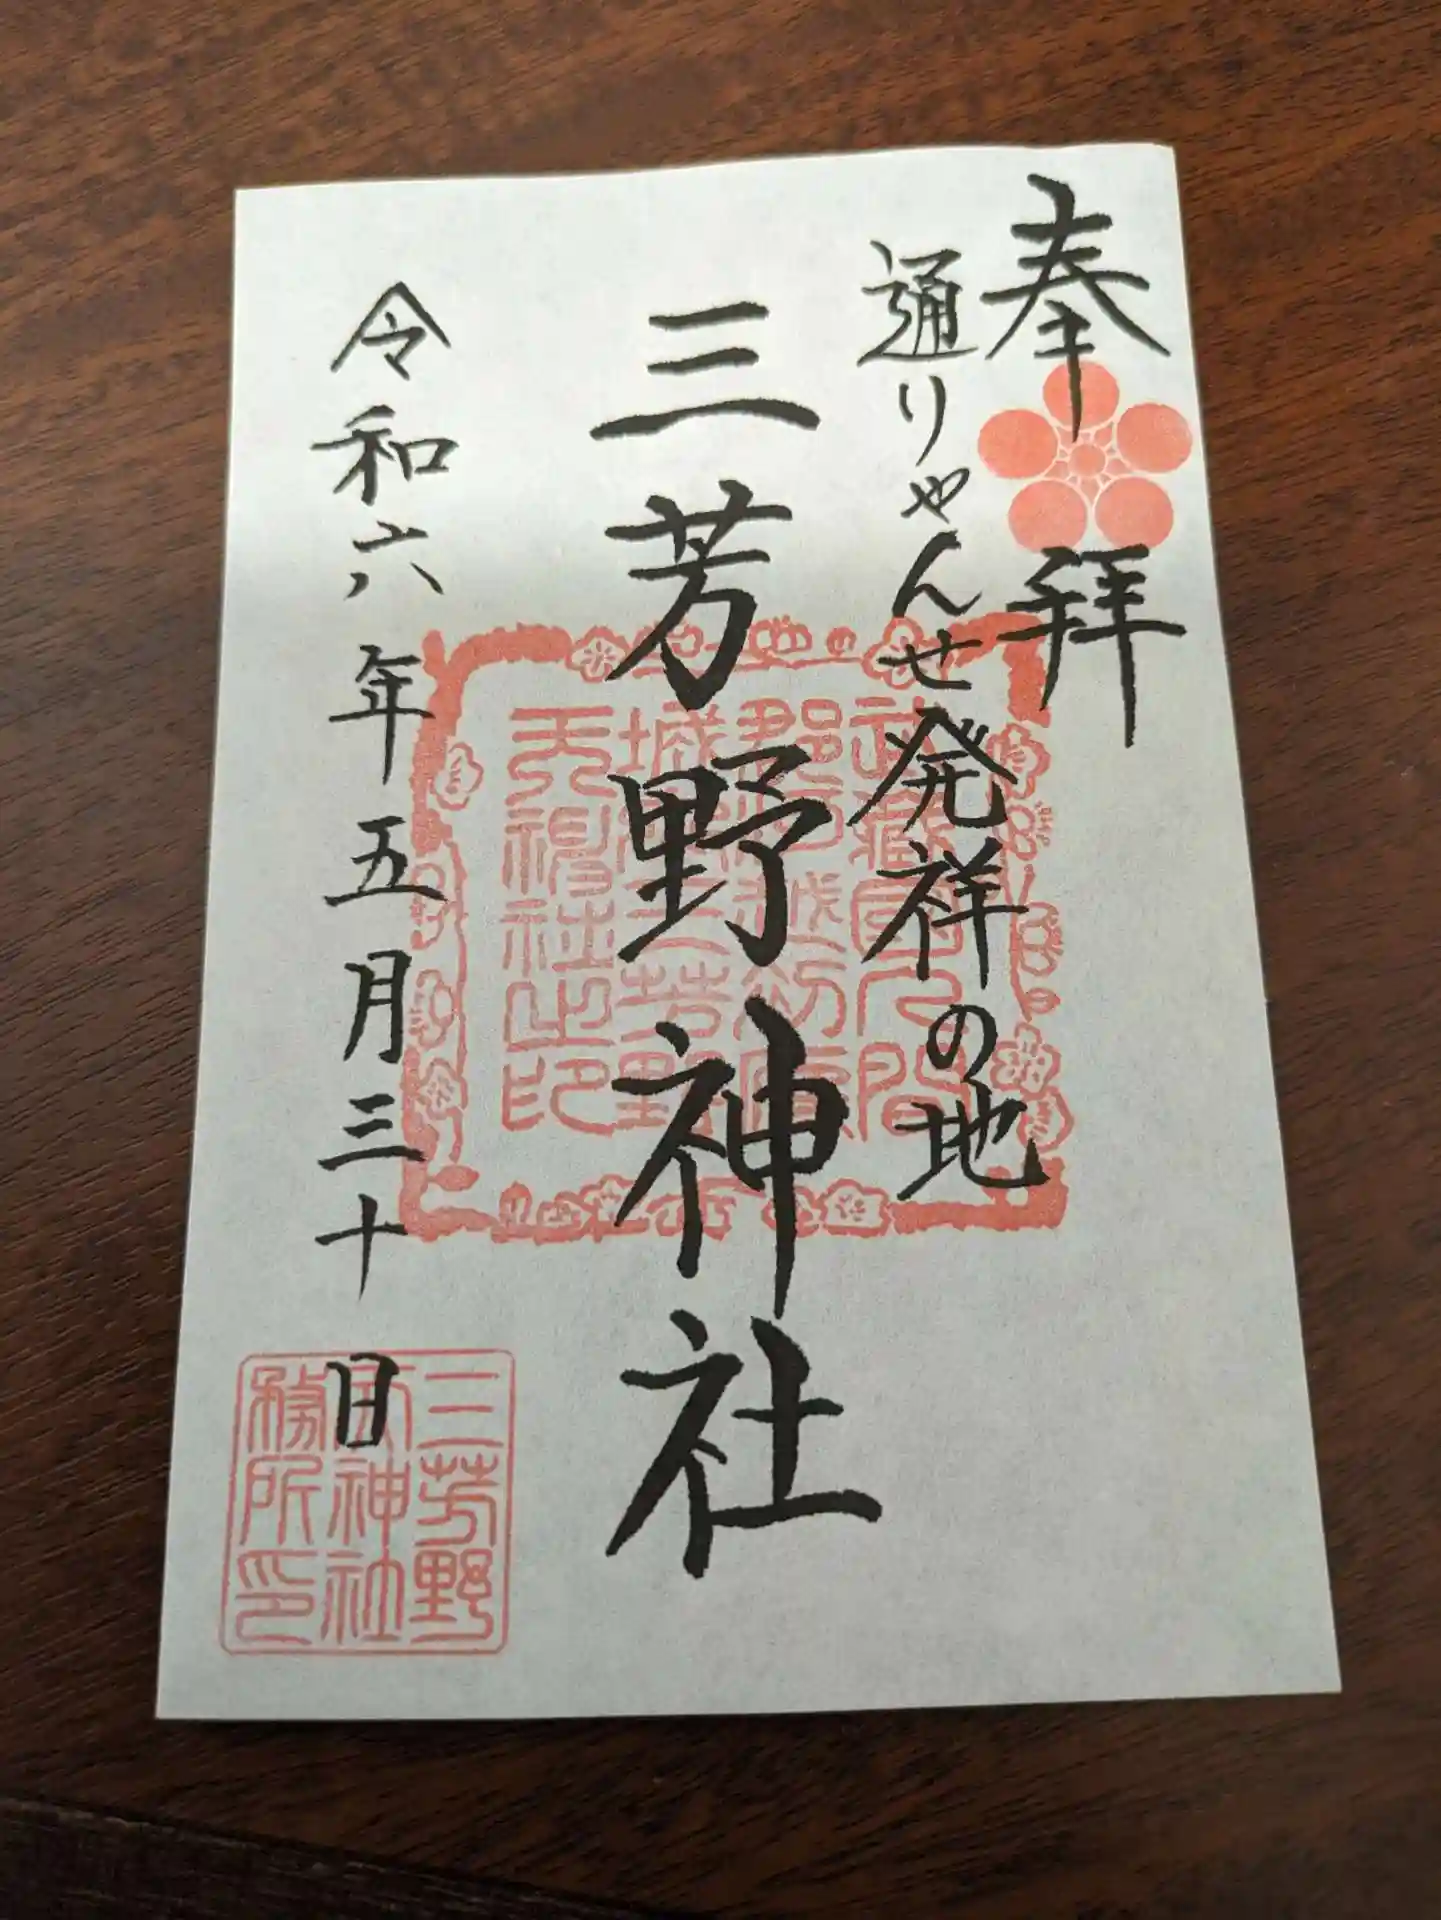 奉拝
通りゃんせ発祥の地
三芳野神社
令和六年五月三十日
武蔵国入間
郡河越初雁
城内三芳野
天神社之印
三芳野
天神社
務所印